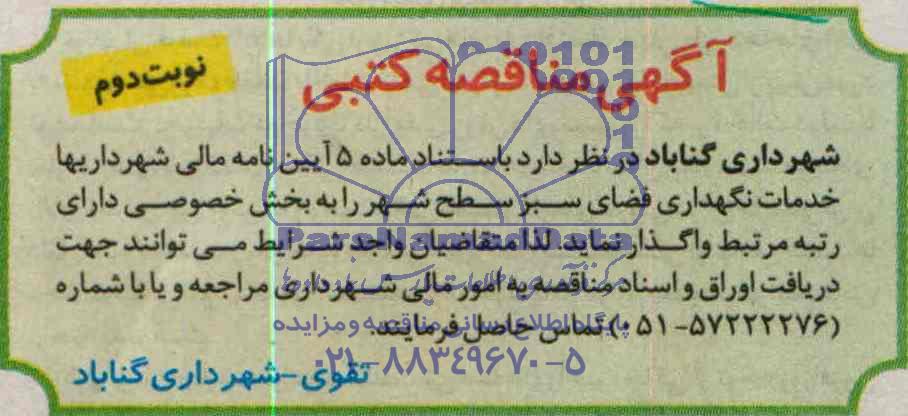 آگهی مناقصه کتبی
نوبت دوم
شهرداری گناباد در نظر دارد باستناد ماده ۵ آیین نامه مالی شهرداریها
خدمات نگهداری فضای سبز سطح شهر را به بخش خصوصی دارای
رتبه مرتبط واگذار نماید. لذا متقاضیان واجد شرایط می توانند جهت
دریافت اوراق و اسناد مناقصه به امور مالی شهرداری مراجعه و یا با شماره
(۰۵۱-۵۷۲۲۲۲۷۶) تماس حاصل فرمایند.
تقوی - شهرداری گناباد
ParsNamadData
پایگاه اطلاع رسانی مناقصه و مزایده
۰۲۱-۸۸۳۴۹۶۷۰-۵